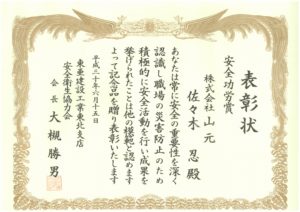 表彰状
安全功労賞
株式会社山元
佐々木 忍 殿
あなたは常に安全の重要性を深く
認識し職場の災害防止のため
積極的に安全活動を行い成果を
挙げられたことは他の模範と認めます
よって記念品を贈り表彰いたします
平成三十年六月十五日
東亜建設工業東北支店
安全衛生協力会
会長 大槻勝男